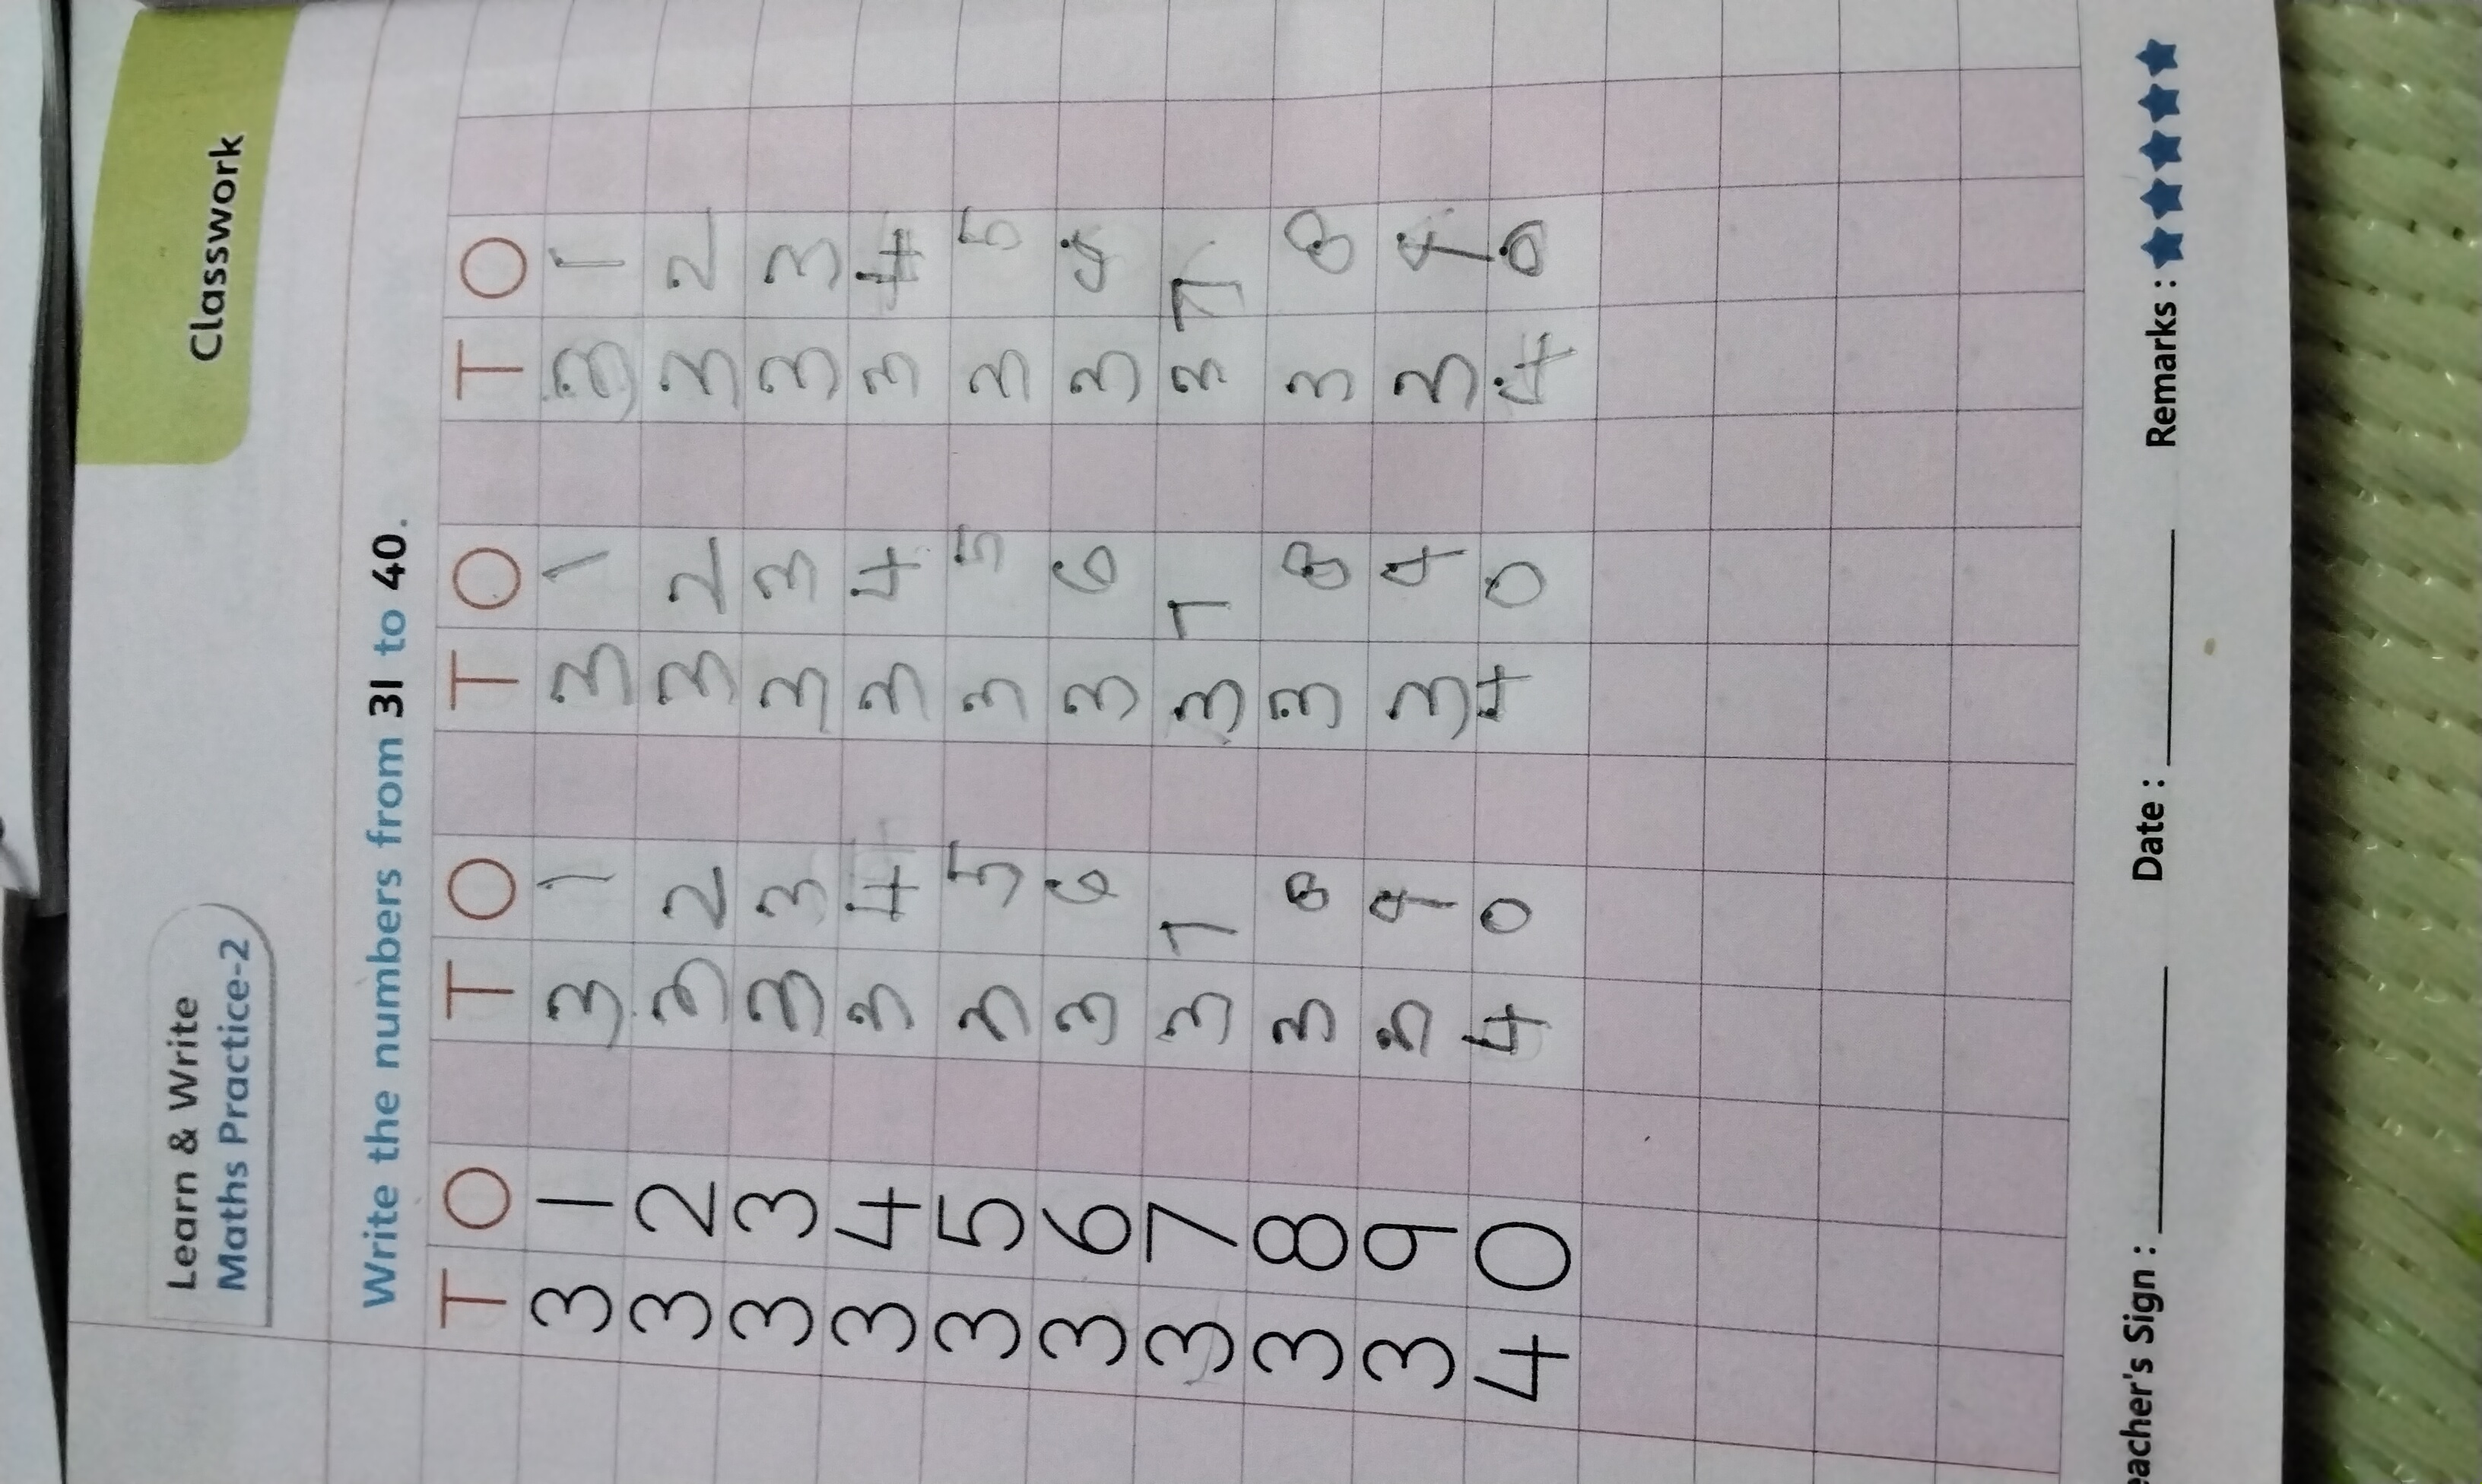 Learn & Write
Maths Practice-2
Classwork
Write the numbers from 31 to 40.
T O T O T O T O
3 1 3 1 3 1 3 1
3 2 3 2 3 2 3 2
3 3 3 3 3 3 3 3
3 4 3 4 3 4 3 4
3 5 3 5 3 5 3 5
3 6 3 6 3 6 3 6
3 7 3 7 3 7 3 7
3 8 3 8 3 8 3 8
3 9 3 9 3 9 3 9
4 0 4 0 4 0 4 0
eacher's Sign : Date : Remarks : ★★★★★